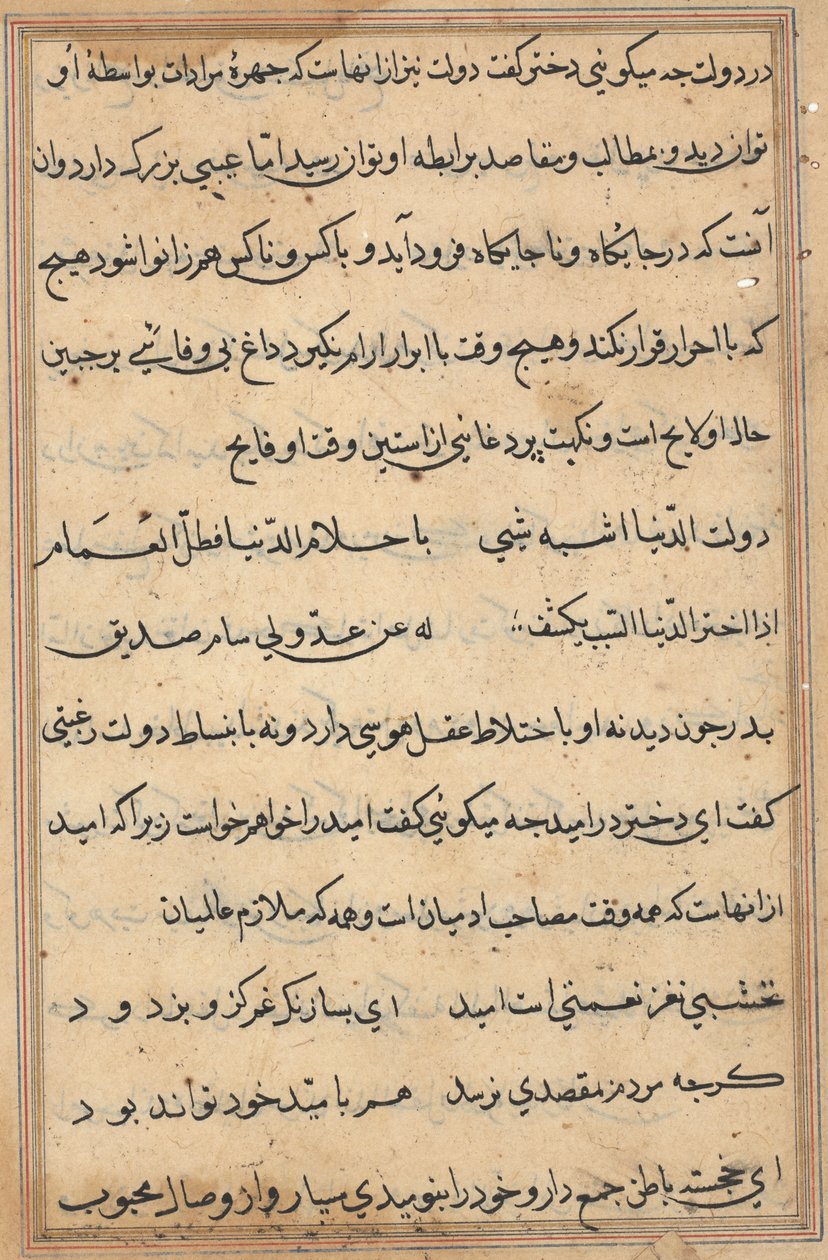 در دولت جه میکوئی دختر کفت دولت نیز ازانهاست که جهرهٔ مرادات بواسطهٔ او
توان دید و بمطالب و مقاصد برابطه او توان رسید امّا عیبی بزرک دارد وان
آنست که در جایکاه و ناجایکاه فرود آید و با کس و ناکس هم زانوا شود هیج
که با احرار قرار نکند و هیج وقت با ابرار ارام نکیرد داغ بی وفائیی بر جبین
حال او لایح است و نکهت پر دغائی از استین وقت او فایح
دولت الدّنیا اشبه شیی با حلام الدّنیا فطلّ الغَمَام
اذا اختبر الدّنیا اللبیب یکشف له عن عدّو لی سام صدیق
بدر جون دید نه او باختلاط عقل هوسی دارد و نه بانبساط دولت رغبتی
کفت ای دختر در امید جه میکوئی کفت امید را خواهم خواست زیرا که امید
ازانهاست که همه وقت مصاحب ادمیان است و همه که ملازم عالمیان
نخشبی نغز نعمتی است امید ای بسا زنک غم کز و بزدود
کرجه مردم بمقصدی نرسد هم بامیّد خود تواند بود
ای خجسته باطن جمع دار و خود را بنومیدی مسپار و از وصال محبوب